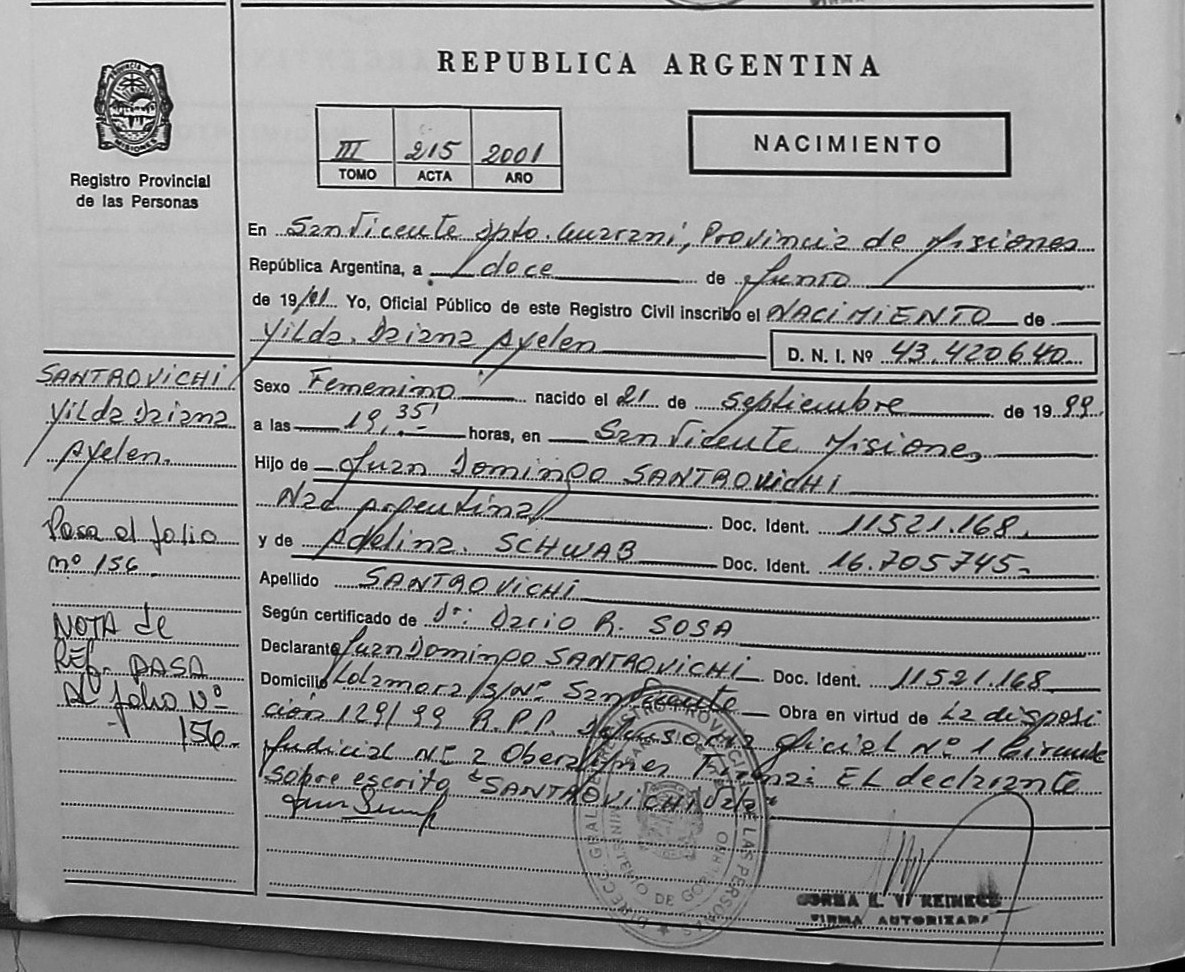 REPUBLICA ARGENTINA
PROVINCIA DE
MISIONES
Registro Provincial
de las Personas
III 215 2001
TOMO ACTA AÑO
NACIMIENTO
En San Vicente Dpto. Guarani, Provincia de Misiones
República Argentina, a doce de Junio
de 19/01 Yo, Oficial Público de este Registro Civil inscribo el NACIMIENTO de
Yilda. Daiana Ayelen D. N. I. Nº 43.420640
Sexo Femenino nacido el 21 de septiembre de 19 99
a las 19,35 horas, en San Vicente Misiones
Hijo de Juan Domingo SANTROVICHI
Nac Argentina Doc. Ident. 11521.168.
y de Adelina. SCHWAB Doc. Ident. 16.705745-
Apellido SANTROVICHI
Según certificado de Dr: Dario R. SOSA
Declarante Juan Domingo SANTROVICHI Doc. Ident. 11521.168
Domicilio s/Nº San Vicente Obra en virtud de La disposi
ción 129/99 R.P.P. oficial Nº 1 Circuns
Judicial Nº 2 Oberá Firma: EL declarante
sobre escrito "SANTROVICHI" Vale
SANTROVICHI
Yilda Daiana
Ayelen.
Pasa al folio
nº 156
NOTA de
REF. PASA
Al folio Nº
156.
DE LAS PERSONAS
MINISTERIO DE GOBIERNO
REINECK
FIRMA AUTORIZADA